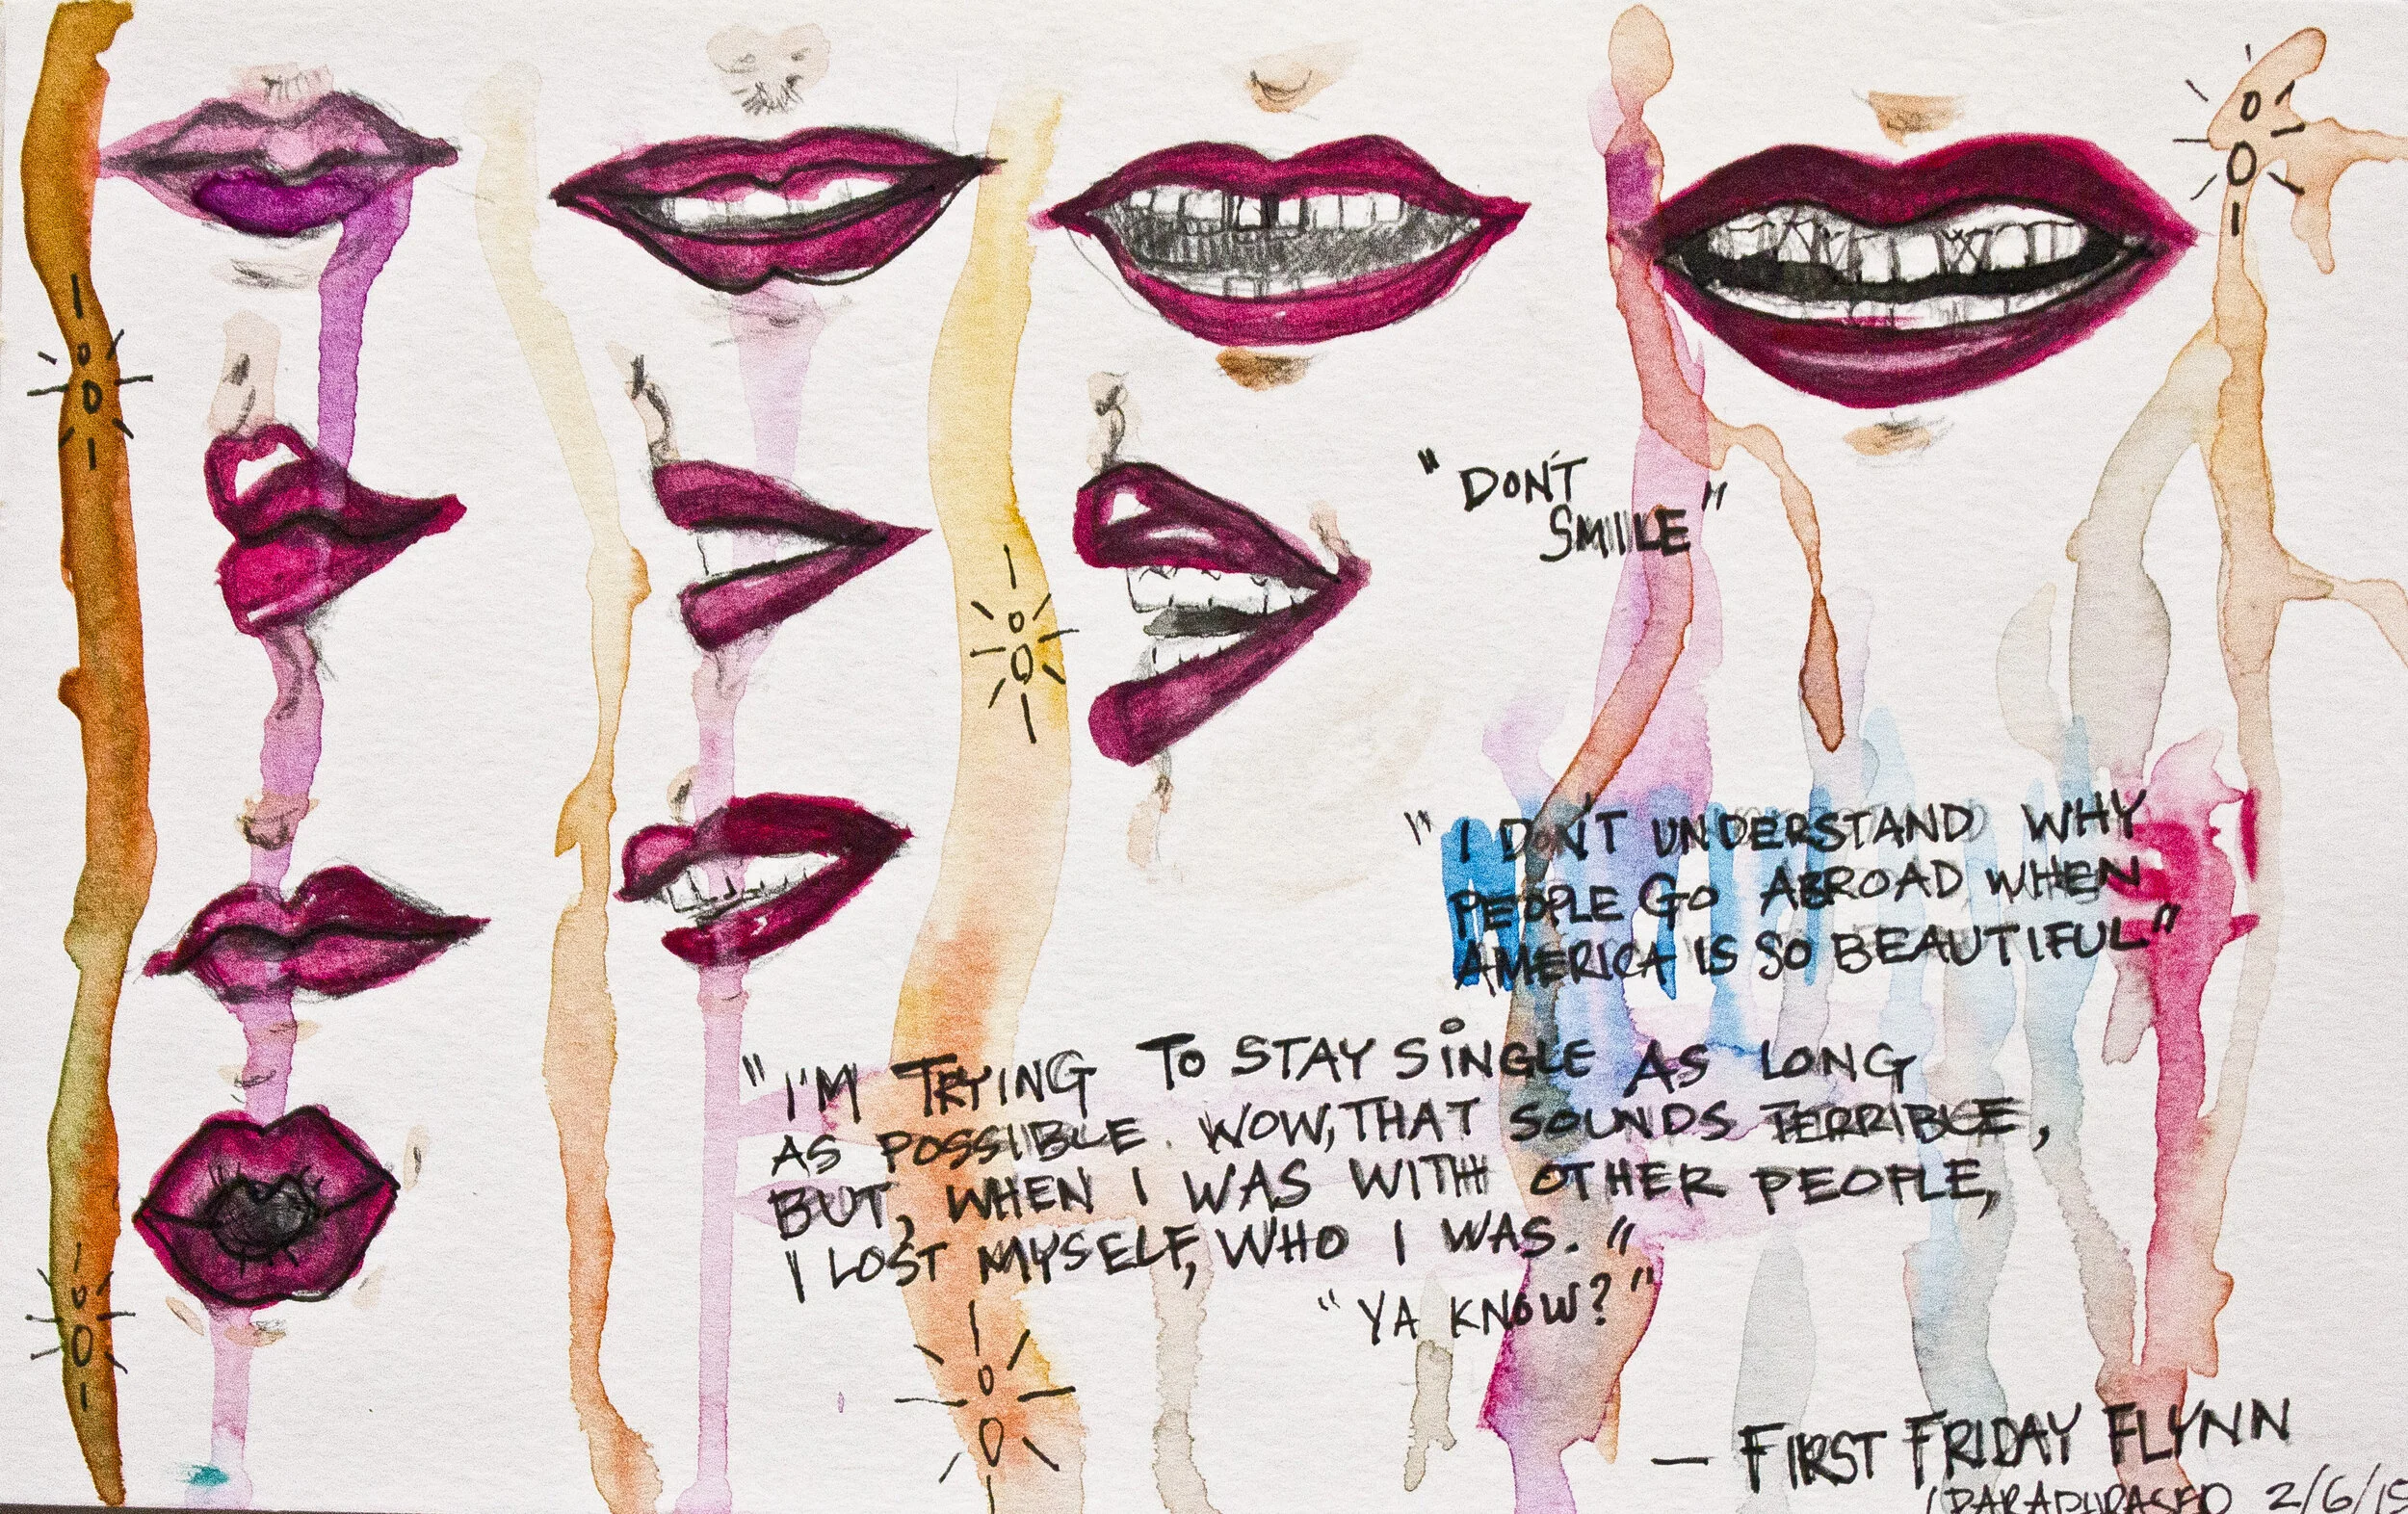 "DON'T
SMILE"
"I DON'T UNDERSTAND WHY
PEOPLE GO ABROAD WHEN
AMERICA IS SO BEAUTIFUL"
"I'M TRYING TO STAY SINGLE AS LONG
AS POSSIBLE. WOW, THAT SOUNDS TERRIBLE,
BUT, WHEN I WAS WITH OTHER PEOPLE,
I LOST MYSELF, WHO I WAS."
"YA KNOW?"
— FIRST FRIDAY FLYNN
(PARAPHRASED 2/6/15